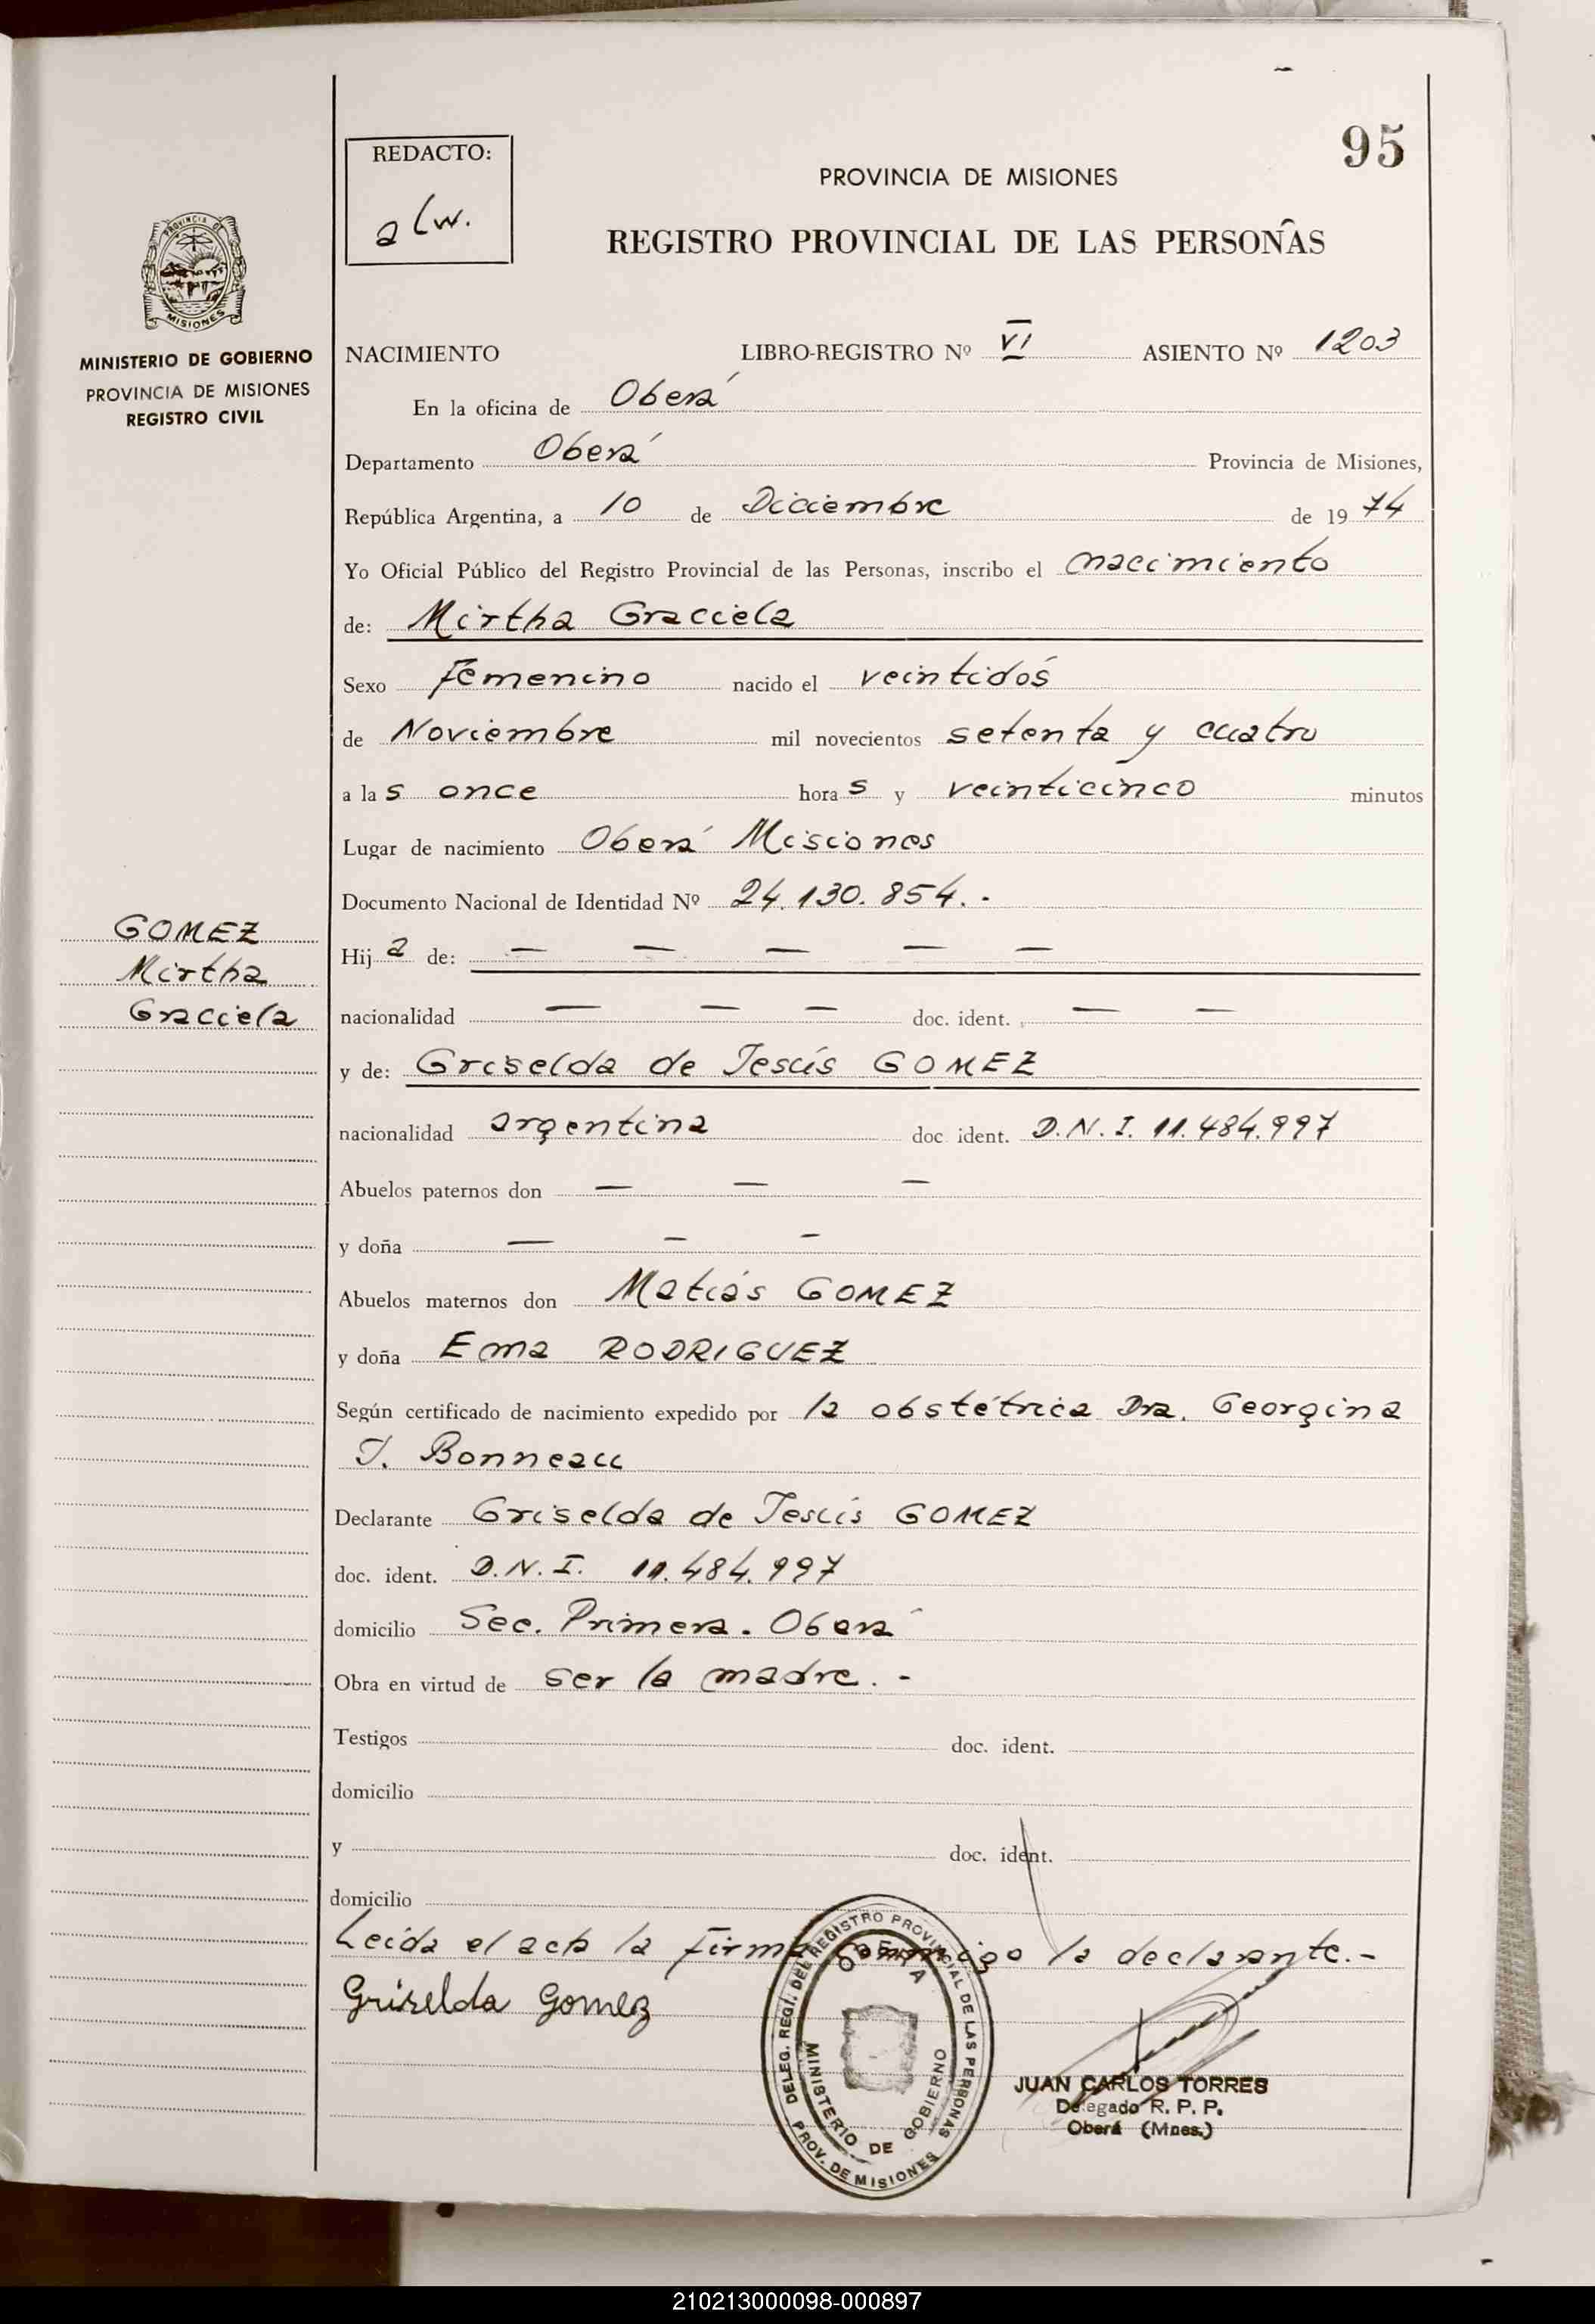 95
REDACTO:
alw.
PROVINCIA DE MISIONES
REGISTRO PROVINCIAL DE LAS PERSONAS
PROVINCIA DE
MISIONES
MINISTERIO DE GOBIERNO
PROVINCIA DE MISIONES
REGISTRO CIVIL
NACIMIENTO LIBRO-REGISTRO Nº VI ASIENTO Nº 1203
En la oficina de Oberá
Departamento Oberá Provincia de Misiones,
República Argentina, a 10 de Diciembre de 1974
Yo Oficial Público del Registro Provincial de las Personas, inscribo el nacimiento
de: Mirtha Graciela
Sexo femenino nacido el veintidós
de Noviembre mil novecientos setenta y cuatro
a las once horas y veinticinco minutos
Lugar de nacimiento Oberá Misiones
Documento Nacional de Identidad Nº 24.130.854.-
GOMEZ
Mirtha
Graciela
Hija de: — — — — —
nacionalidad — — — doc. ident. — —
y de: Griselda de Jesús GOMEZ
nacionalidad argentina doc. ident. D.N.I. 11.484.997
Abuelos paternos don — — —
y doña — — —
Abuelos maternos don Matiás GOMEZ
y doña Ema RODRIGUEZ
Según certificado de nacimiento expedido por la obstétrica Dra. Georgina
J. Bonneau
Declarante Griselda de Jesús GOMEZ
doc. ident. D.N.I. 11.484.997
domicilio Sec. Primera. Oberá
Obra en virtud de ser la madre.-
Testigos doc. ident.
domicilio
y doc. ident.
domicilio
Leida el acta la firma conmigo la declarante.-
Griselda Gomez
DELEG. REGI. DEL REGISTRO PROVINCIAL DE LAS PERSONAS
PROV. DE MISIONES
MINISTERIO DE GOBIERNO
JUAN CARLOS TORRES
Delegado R. P. P.
Oberá (Mnes.)
210213000098-000897